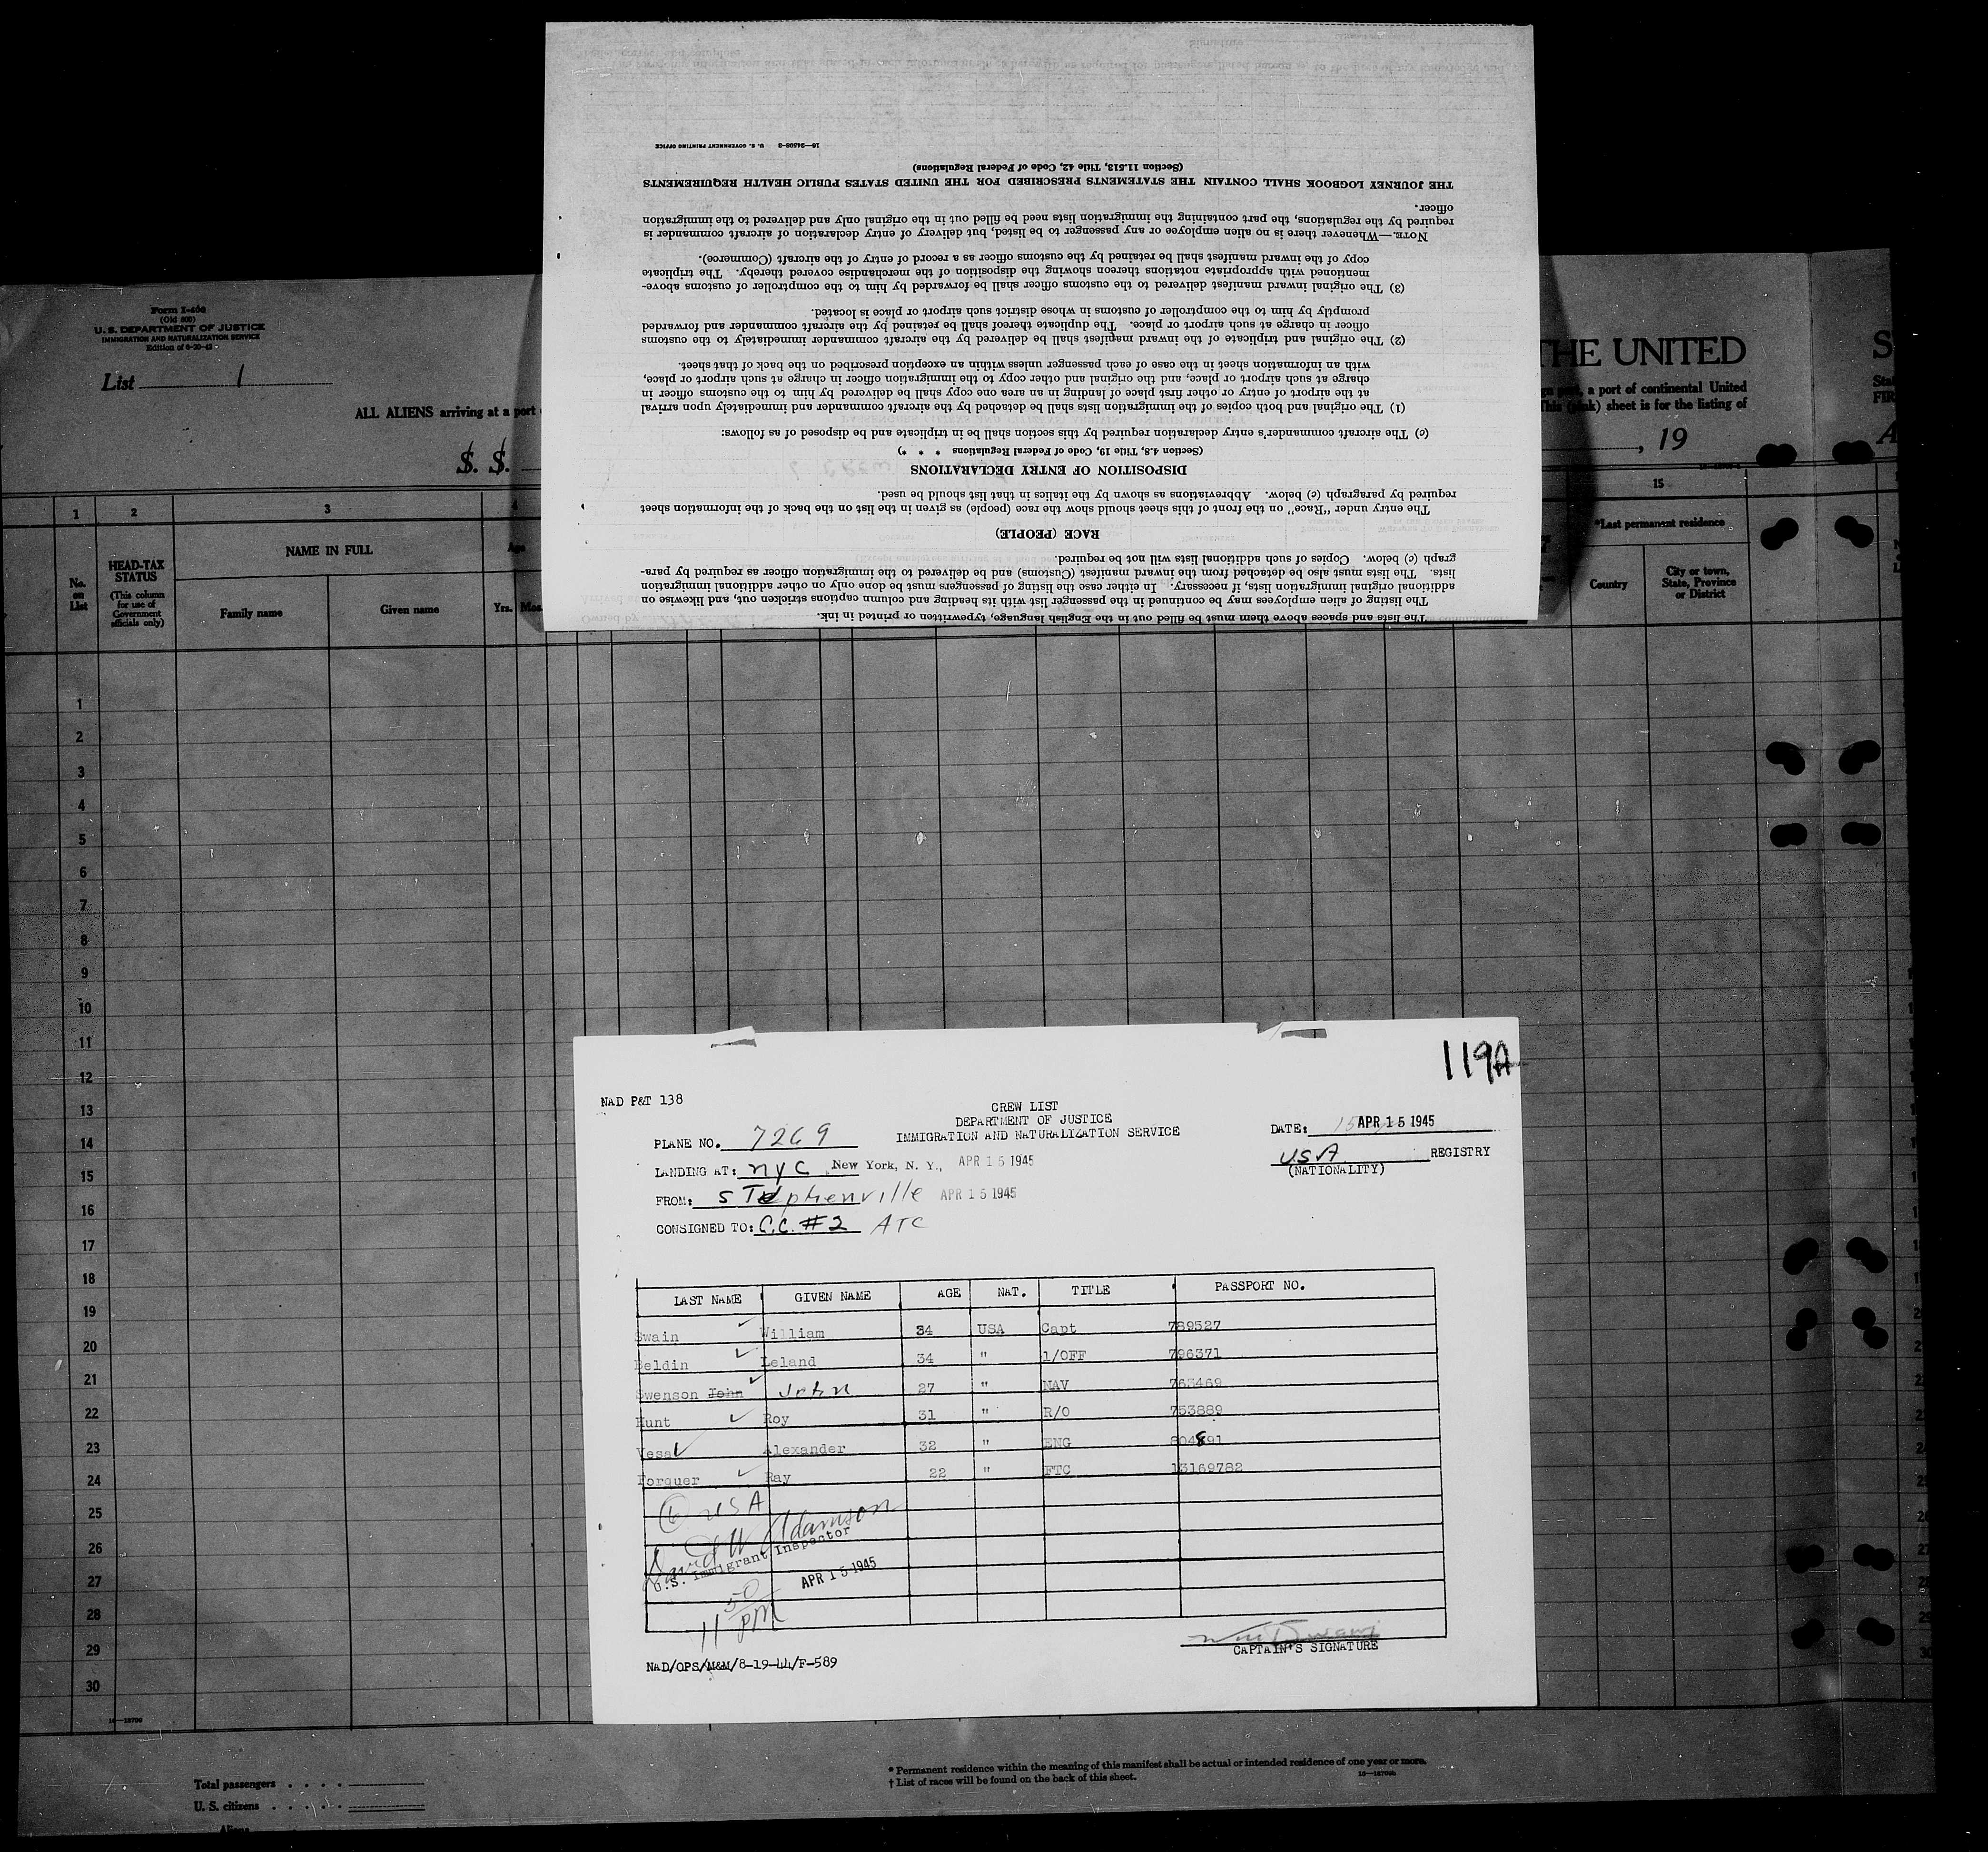 Form I-400
(Old 500)
U. S. DEPARTMENT OF JUSTICE
IMMIGRATION AND NATURALIZATION SERVICE
Edition of 6-20-42
List 1
ALL ALIENS arriving at a port
S. S.
THE UNITED
a port of continental United
sheet is for the listing of
, 19
1 2 3 4 15
No. on List
HEAD-TAX STATUS
(This column for use of Government officials only)
NAME IN FULL
Family name
Given name
Age
Yrs. Mos.
*Last permanent residence
Country
City or town, State, Province or District
The lists and spaces above them must be filled out in the English language, typewritten or printed in ink.
The listing of alien employees may be continued in the passenger list with its heading and column captions stricken out, and likewise on
additional original immigration lists, if necessary. In either case the listing of passengers must be done only on other additional immigration
lists. The lists must also be detached from the inward manifest (Customs) and be delivered to the immigration officer as required by para-
graph (c) below. Copies of such additional lists will not be required.
RACE (PEOPLE)
The entry under "Race" on the front of this sheet should show the race (people) as given in the list on the back of the information sheet
required by paragraph (c) below. Abbreviations as shown by the italics in that list should be used.
DISPOSITION OF ENTRY DECLARATIONS
(Section 4.8, Title 19, Code of Federal Regulations * * *)
(c) The aircraft commander's entry declaration required by this section shall be in triplicate and be disposed of as follows:
(1) The original and both copies of the immigration lists shall be detached by the aircraft commander and immediately upon arrival
at the airport of entry or other first place of landing in an area one copy shall be delivered by him to the customs officer in
charge at such airport or place, and the original and other copy to the immigration officer in charge at such airport or place,
with an information sheet in the case of each passenger unless within an exception prescribed on the back of that sheet.
(2) The original and triplicate of the inward manifest shall be delivered by the aircraft commander immediately to the customs
officer in charge at such airport or place. The duplicate thereof shall be retained by the aircraft commander and forwarded
promptly by him to the comptroller of customs in whose district such airport or place is located.
(3) The original inward manifest delivered to the customs officer shall be forwarded by him to the comptroller of customs above-
mentioned with appropriate notations thereon showing the disposition of the merchandise covered thereby. The triplicate
copy of the inward manifest shall be retained by the customs officer as a record of entry of the aircraft (Commerce).
NOTE.—Whenever there is no alien employee or any passenger to be listed, but delivery of entry declaration of aircraft commander is
required by the regulations, the part containing the immigration lists need be filled out in the original only and delivered to the immigration
officer.
THE JOURNEY LOGBOOK SHALL CONTAIN THE STATEMENTS PRESCRIBED FOR THE UNITED STATES PUBLIC HEALTH REQUIREMENTS
(Section 11.513, Title 42, Code of Federal Regulations)
16—24598-3 U. S. GOVERNMENT PRINTING OFFICE
1
2
3
4
5
6
7
8
9
10
11
12
13
14
15
16
17
18
19
20
21
22
23
24
25
26
27
28
29
30
119A
NAD P&T 138
CREW LIST
DEPARTMENT OF JUSTICE
IMMIGRATION AND NATURALIZATION SERVICE
PLANE NO. 7269
DATE: 15 APR 15 1945
LANDING AT: NYC New York, N. Y., APR 15 1945
USA REGISTRY
(NATIONALITY)
FROM: Stephenville APR 15 1945
CONSIGNED TO: C.C. #2 ATC
LAST NAME GIVEN NAME AGE NAT. TITLE PASSPORT NO.
Swain William 34 USA Capt 789527
Beldin Leland 34 " 1/OFF 796371
Swenson John John 27 " NAV 763469
Hunt Roy 31 " R/O 753889
Vesal Alexander 32 " ENG 804891
Forquer Ray 22 " FTC 13169782
6 USA
David W Adamson
U.S. Immigrant Inspector
APR 15 1945
11 50 PM
CAPTAIN'S SIGNATURE
NAD/OPS/M&M/8-19-44/F-589
16—18706
Total passengers
U. S. citizens
Aliens
* Permanent residence within the meaning of this manifest shall be actual or intended residence of one year or more.
† List of races will be found on the back of this sheet.